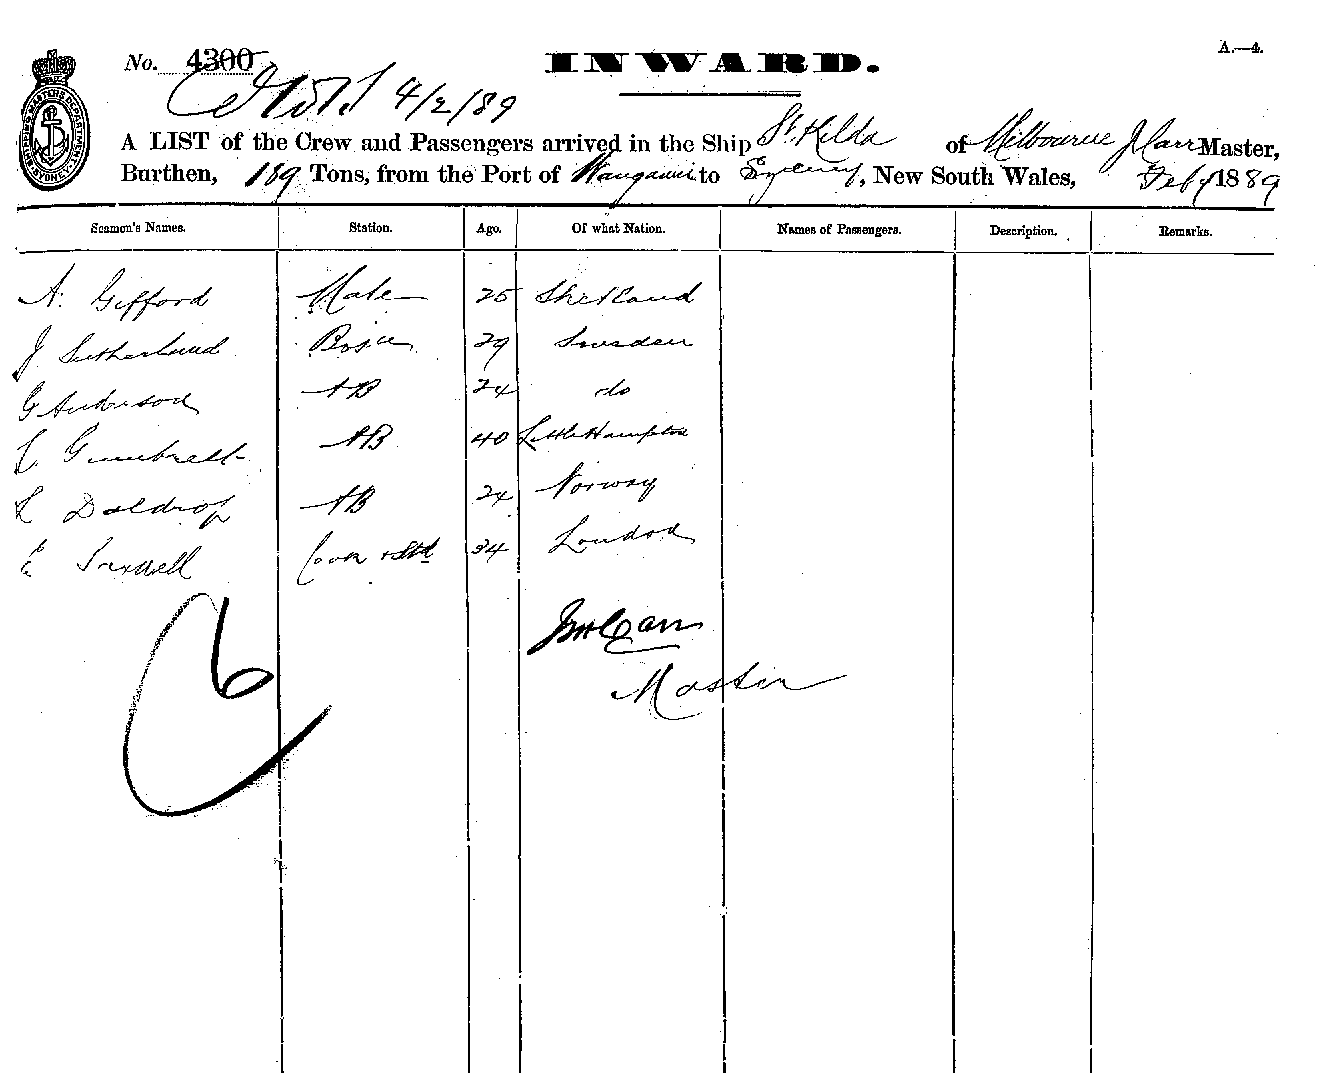 A.—4.
No. 4300 INWARD.
4/2/89
A LIST of the Crew and Passengers arrived in the Ship St. Kilda of Melbourne J Carr Master,
Burthen, 189 Tons, from the Port of Wanganui to Sydney, New South Wales, Feby 1889
Seamen's Names. Station. Age. Of what Nation. Names of Passengers. Description. Remarks.
A. Gifford Mate 25 Shetland
J Sutherland Bosn 29 Sweden
G Anderson AB 24 do
Gumbrell AB 40 LittleHampton
L Daldrop AB 24 Norway
E Cook & Std 34 London
Carr
Master
6
SHIPPING MASTERS DEPARTMENT SYDNEY